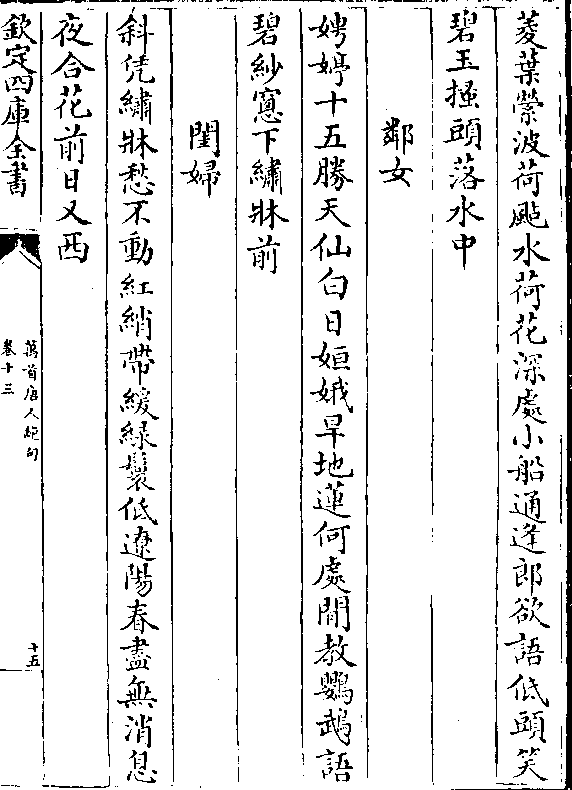 菱葉縈波荷颭水荷花深處小船通逢郎欲語低頭笑
碧玉搔頭落水中
鄰女
娉婷十五勝天仙白日姮娥旱地蓮何處閒教鸚鵡語
碧紗窻下繡牀前
閨婦
斜凭繡牀愁不動紅綃帶緩緑鬟低遼陽春盡無消息
夜合花前日又西
欽定四庫全書
萬首唐人絶句
卷十三
十五